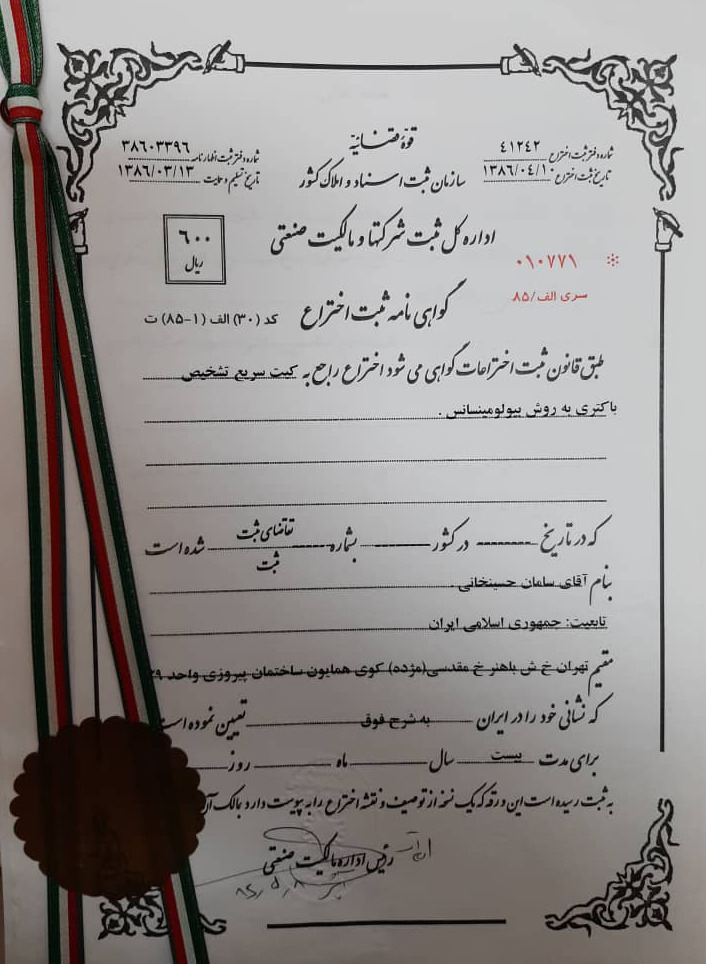 قوهٔ قضائیه
شماره دفتر ثبت اختراع ۴۱۲۴۲
تاریخ ثبت اختراع ۱۳۸۶/۰۴/۱۰
سازمان ثبت اسناد و املاک کشور
شماره دفتر ثبت اظهارنامه ۳۸۶۰۳۳۹۶
تاریخ تسلیم و حمایت ۱۳۸۶/۰۳/۱۳
اداره کل ثبت شرکتها و مالکیت صنعتی
۶۰۰
ریال
۰۱۰۷۷۱
سری الف/۸۵
گواهی نامه ثبت اختراع
کد (۳۰) الف (۱-۸۵) ت
طبق قانون ثبت اختراعات گواهی می شود اختراع راجع به کیت سریع تشخیص
باکتری به روش بیولومینسانس .
که در تاریخ -------- در کشور -------- بشماره -------- تقاضای ثبت شده است
ثبت
بنام آقای سامان حسینخانی
تابعیت: جمهوری اسلامی ایران
مقیم تهران خ ش باهنر خ مقدسی(مژده) کوی همایون ساختمان پیروزی واحد ۲۹
که نشانی خود را در ایران به شرح فوق تعیین نموده است
برای مدت بیست سال ماه روز
به ثبت رسیده است این ورقه که یک نسخه از توصیف و نقشه اختراع را به پیوست دارد بمالک آن
رئیس اداره مالکیت صنعتی